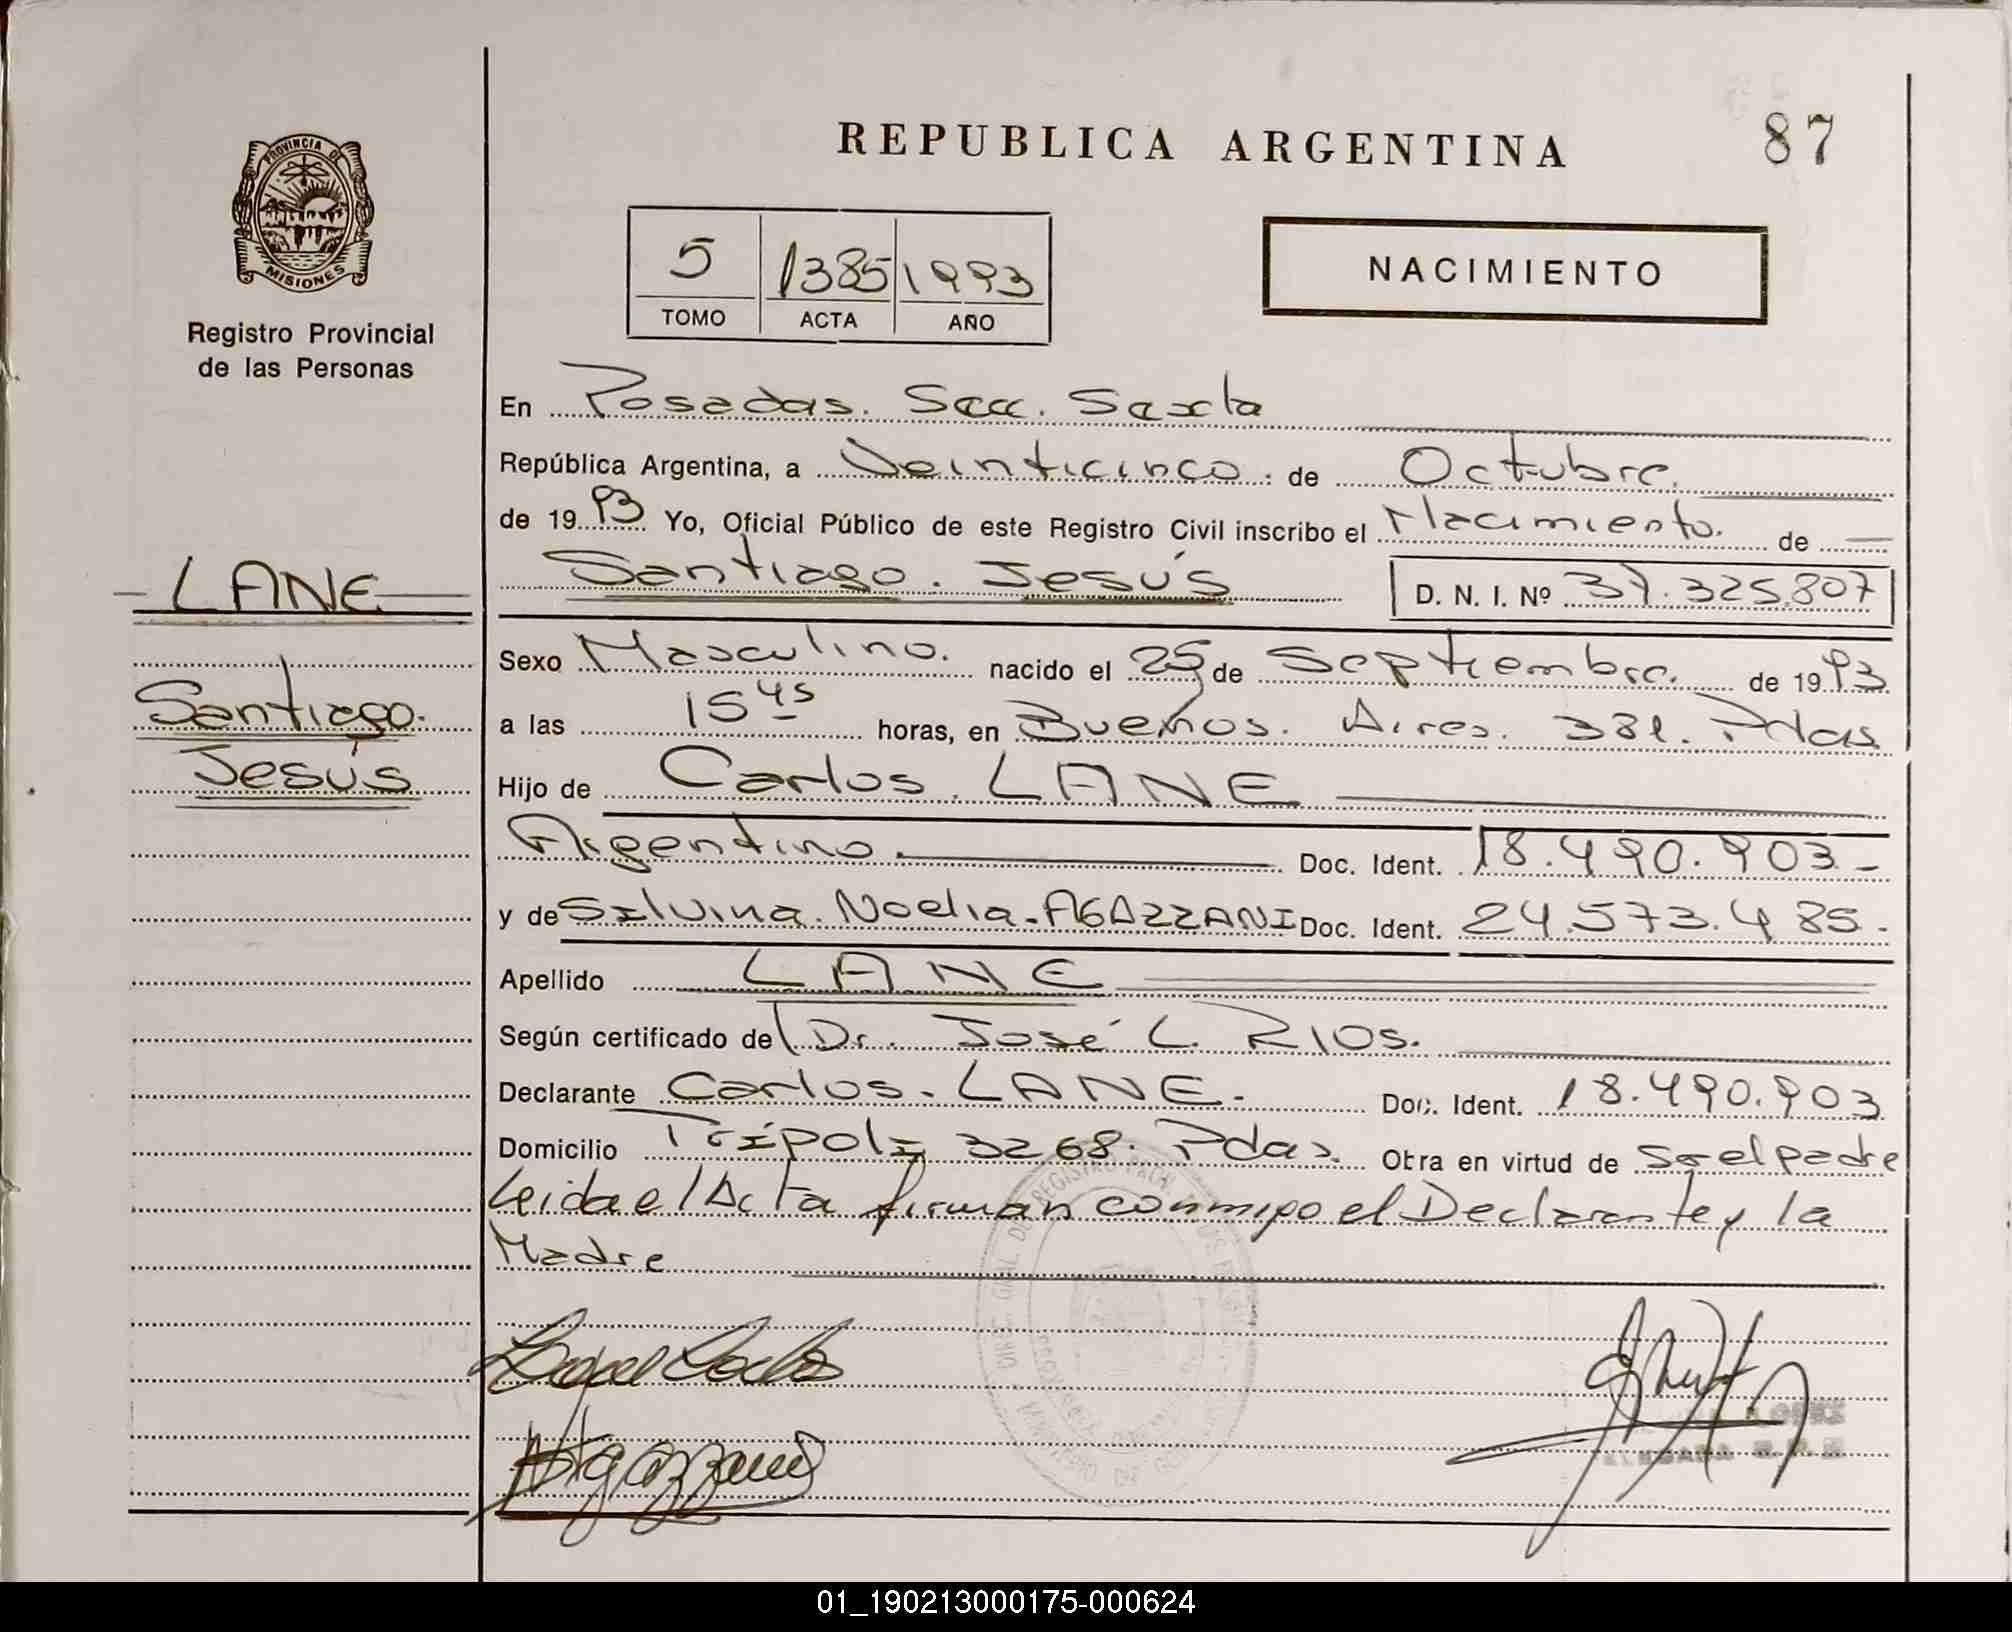 REPUBLICA ARGENTINA
87
PROVINCIA DE
MISIONES
Registro Provincial
de las Personas
5 1385 1993
TOMO ACTA AÑO
NACIMIENTO
En Posadas. Secc. Sexta
República Argentina, a Veinticinco. de Octubre.
de 1993 Yo, Oficial Público de este Registro Civil inscribo el Nacimiento. de
Santiago. Jesús
D. N. I. Nº 37.325.807
LANE
Santiago.
Jesús
Sexo Masculino. nacido el 25 de Septiembre. de 1993
a las 15 45 horas, en Buenos. Aires. 381. Pdas
Hijo de Carlos. LANE
Argentino. Doc. Ident. 18.490.903-
y de Silvina. Noelia. AGAZZANI Doc. Ident. 24.573.485.
Apellido LANE
Según certificado de Dr. José L. RIOS.
Declarante Carlos. LANE. Doc. Ident. 18.490.903
Domicilio Trípoli 3268. Pdas. Obra en virtud de ser el padre
Leida el Acta firman conmigo el Declarante y la
Madre
Agazzani
01_190213000175-000624